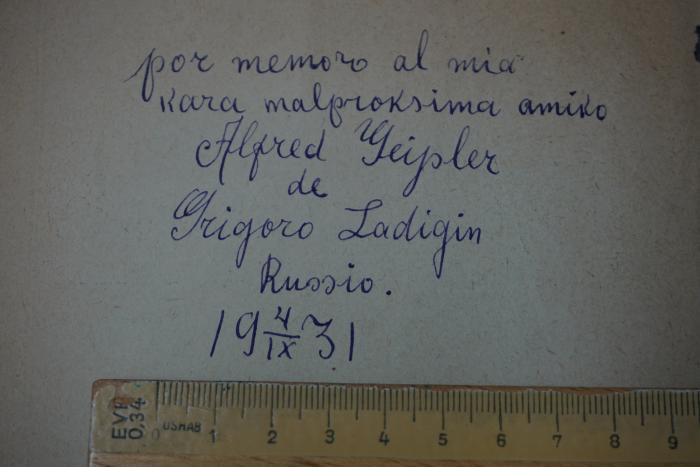 por memoro al mia
kara malproksima amiko
Alfred Geipler
de
Grigoro Ladigin
Russio.
19 4/IX 31
EVP
0,34
OSMAB
1 2 3 4 5 6 7 8 9